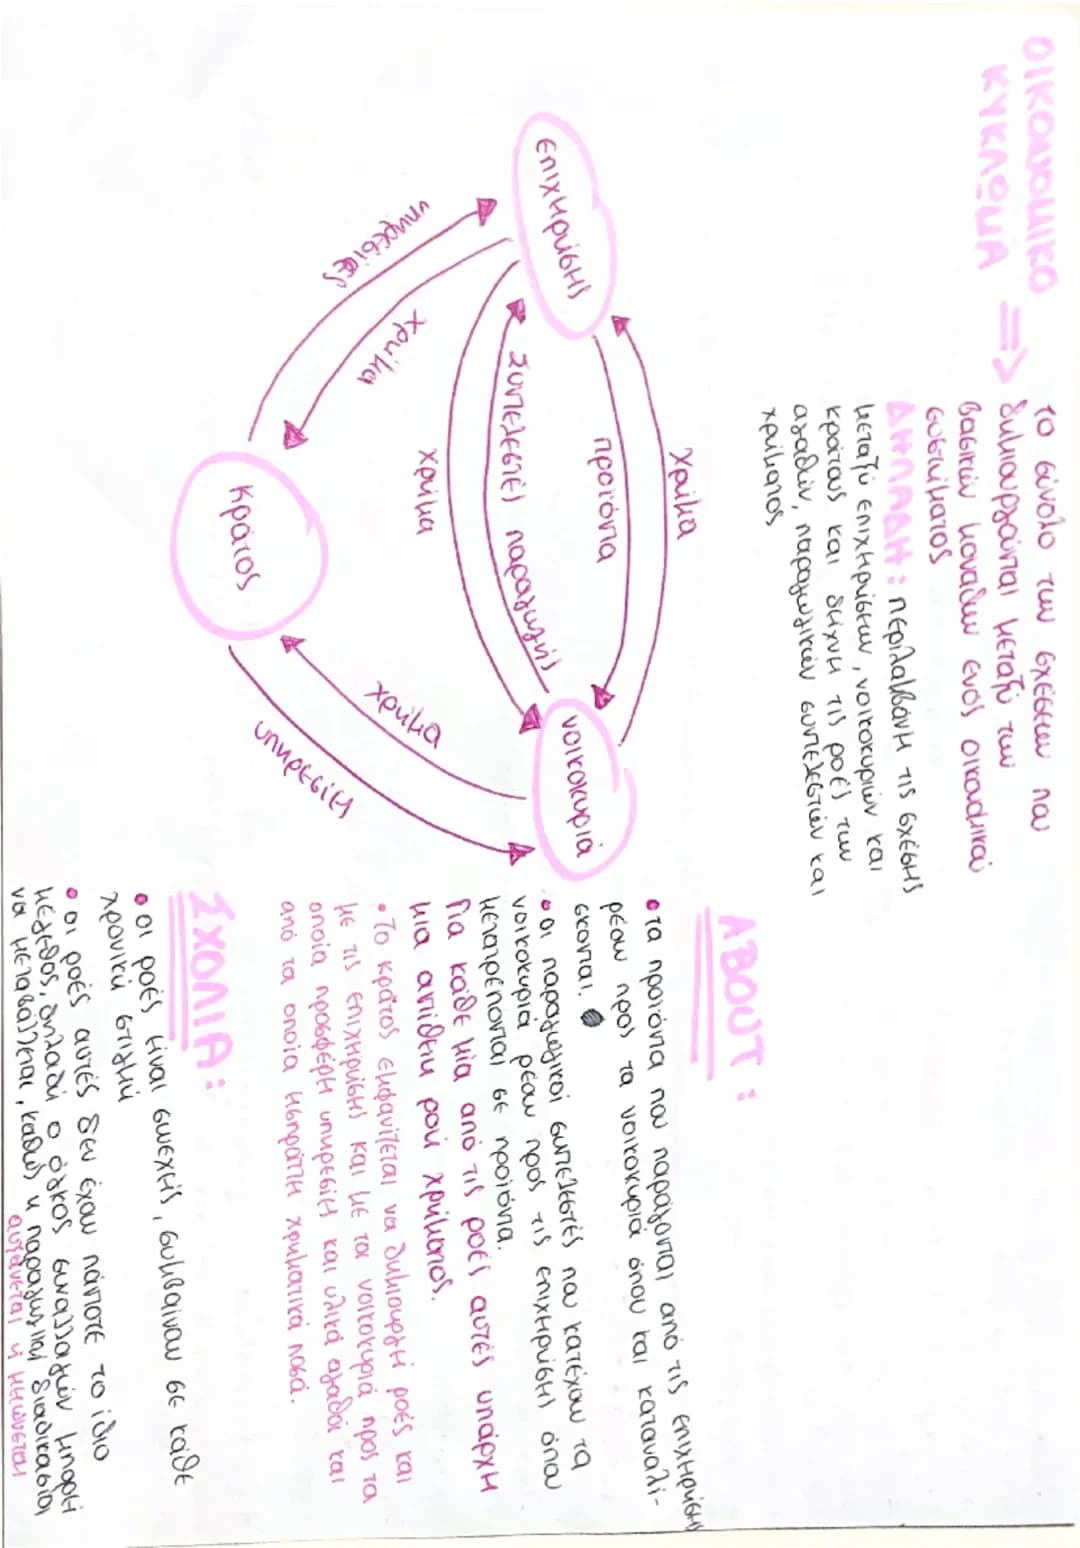 ΟΙΚΟΝΟΜΙΚΟ
ΚΥΚΛΩΜΑ =>
το σύνολο των σχέσεων που
δημιουργούνται μεταξύ των
βασικών μονάδων ενός οικονομικού
συστήματος
ΔΗΛΑΔΗ: περιλαμβάνει τις σχέσεις
μεταξύ επιχειρήσεων, νοικοκυριών και
κράτους και δείχνει τις ροές των
αγαθών, παραγωγικών συντελεστών και
χρήματος
Χρήμα
προϊόντα
επιχειρήσεις
νοικοκυριά
Συντελεστές παραγωγής
χρήμα
χρήμα
υπηρεσίες
χρήμα
υπηρεσίει
Κράτος
ABOUT:
• τα προϊόντα που παράγονται από τις επιχειρήσεις
ρέουν προς τα νοικοκυριά όπου και καταναλί-
σκονται.
• οι παραγωγικοί συντελεστές που κατέχουν τα
νοικοκυριά ρέουν προς τις επιχειρήσει όπου
μετατρέπονται σε προϊόντα.
Για κάθε μία από τις ροές αυτές υπάρχει
μια αντίθετη ροή χρήματος.
• Το κράτος εμφανίζεται να δημιουργεί ροές και
με τις επιχειρήσεις και με τα νοικοκυριά προς τα
οποία προσφέρει υπηρεσίει και υλικά αγαθά και
από τα οποία εισπράττει χρηματικά ποσά.
ΣΧΟΛΙΑ:
• οι ροές είναι συνεχείς, συμβαίνουν σε κάθε
χρονική στιγμή
• οι ροές αυτές δεν έχουν πάντοτε το ίδιο
μέγεθος, δηλαδή ο όγκος συναλλαγών μπορεί
να μεταβάλλεται, καθώς η παραγωγική διαδικασία
αυξάνεται ή μειώνεται